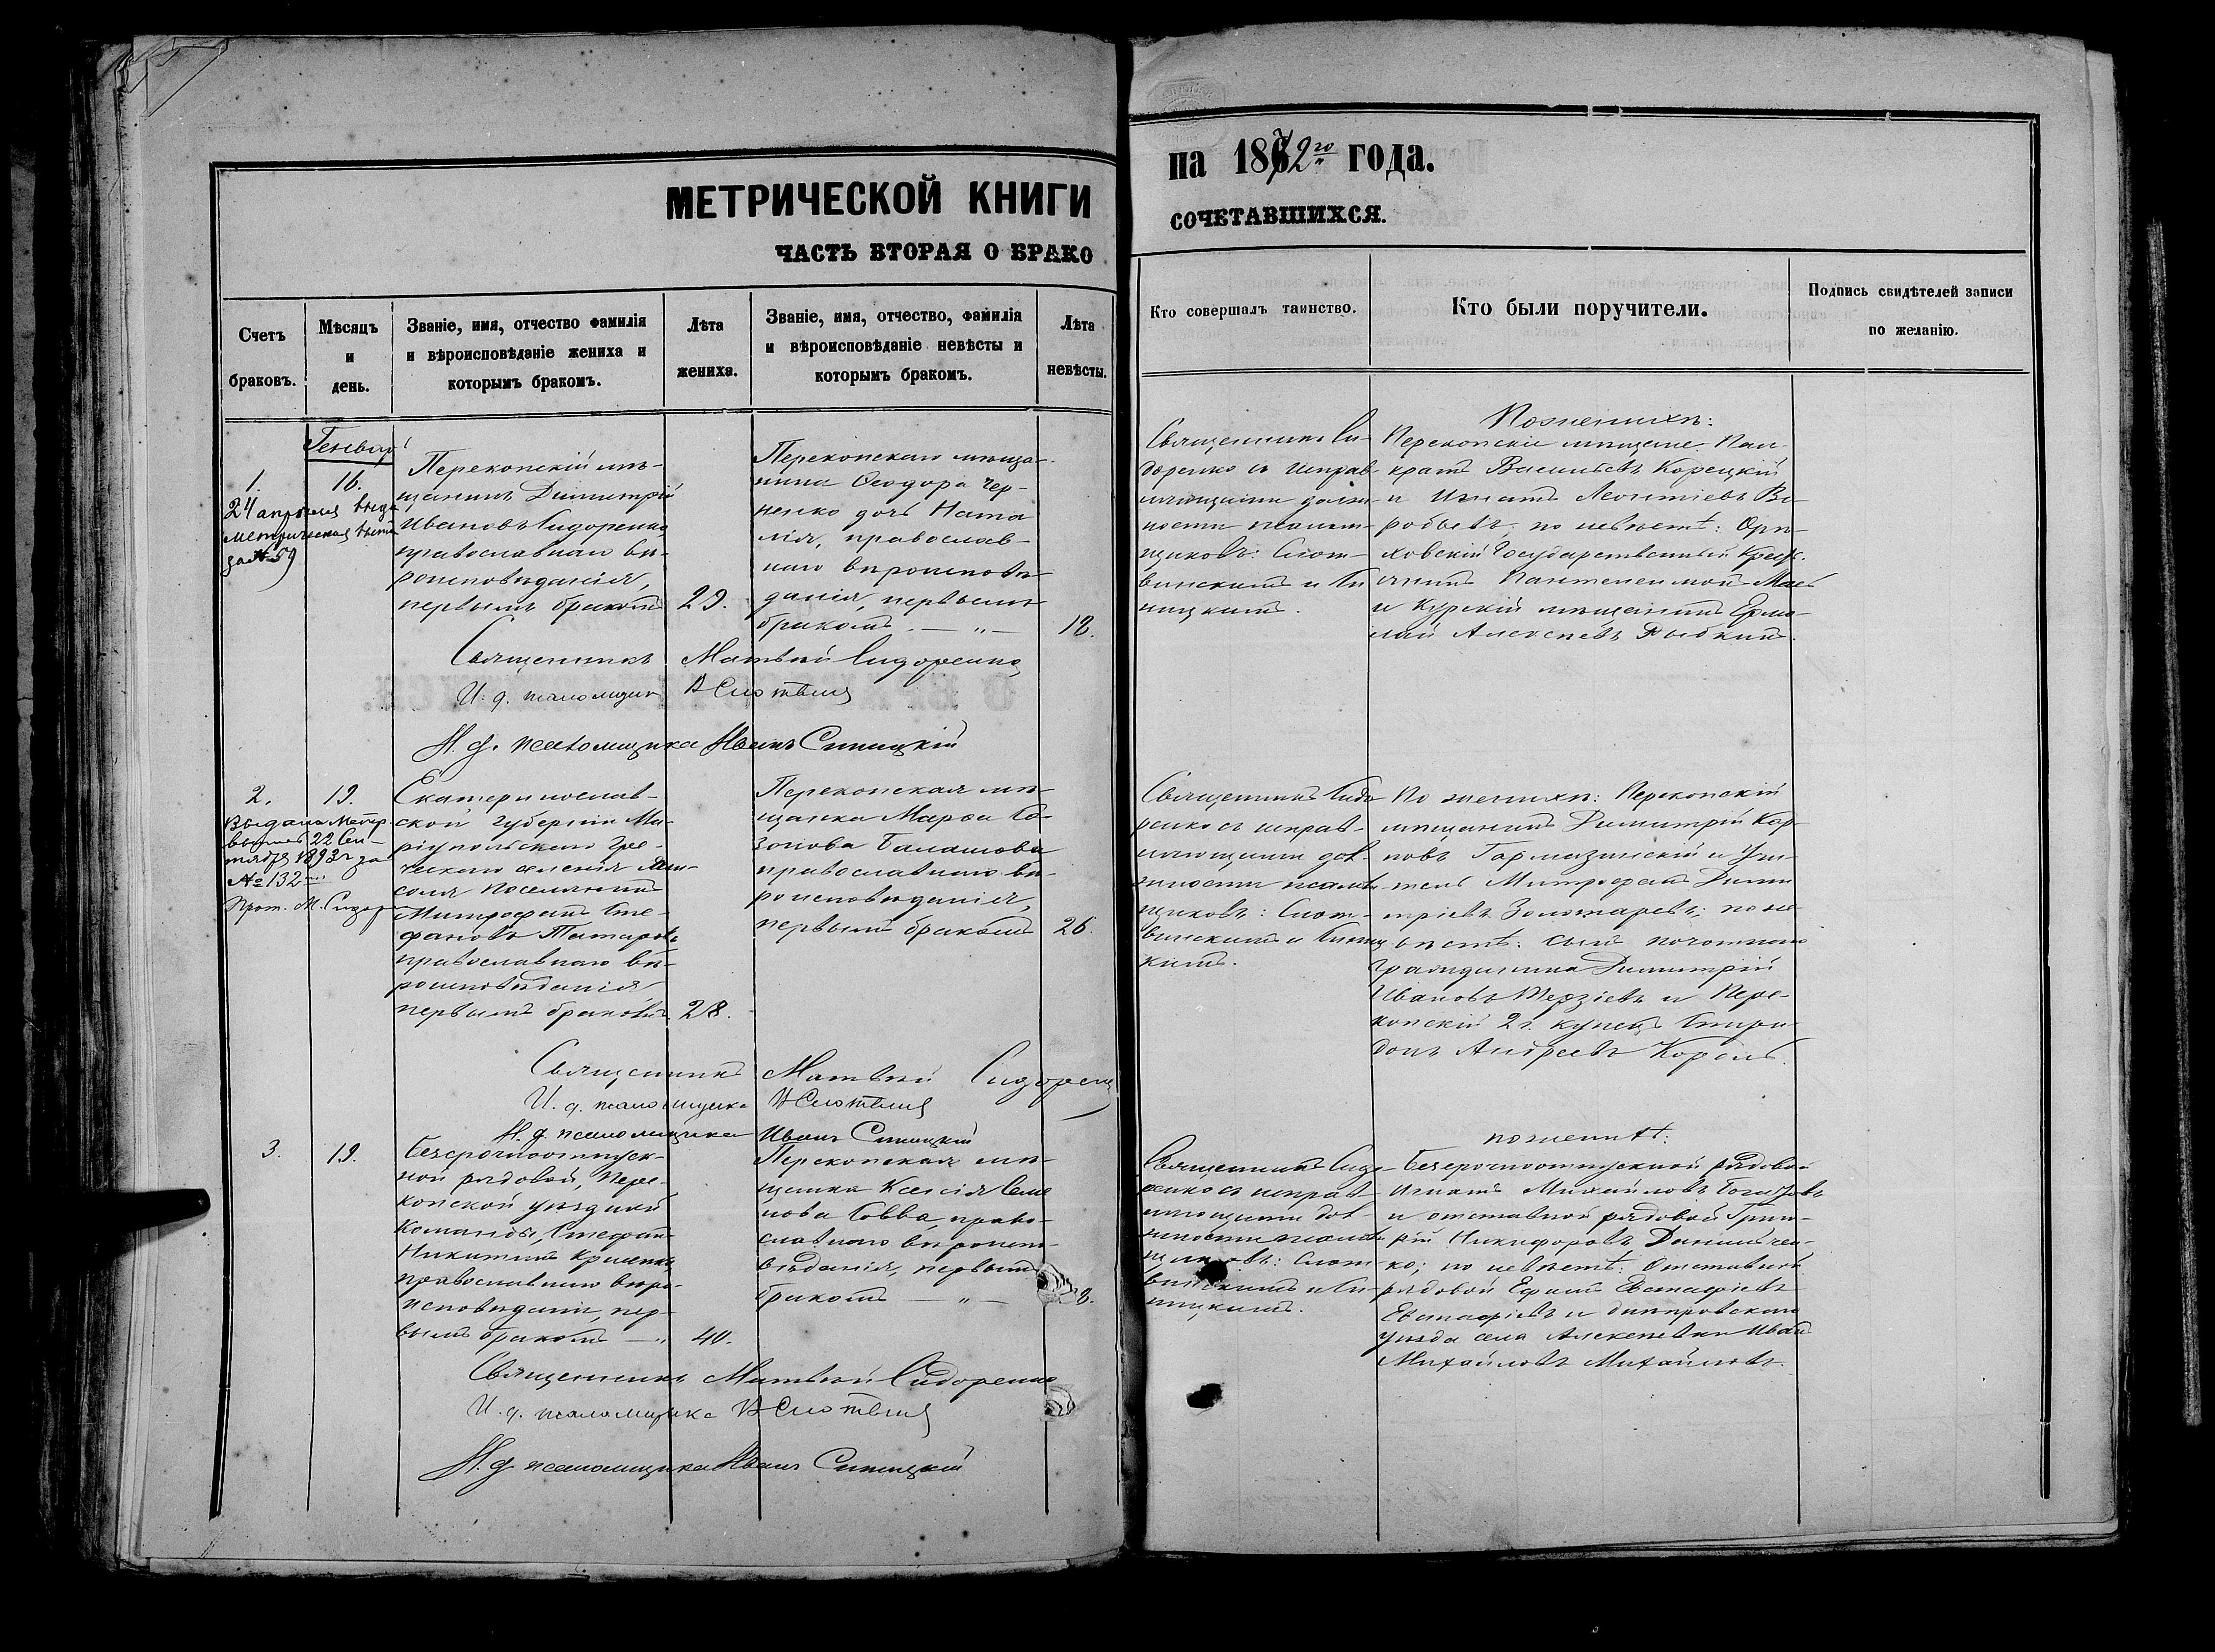 МЕТРИЧЕСКОЙ КНИГИ
ЧАСТЬ ВТОРАЯ О БРАКО
на 1872го года.
СОЧЕТАВШИХСЯ.
Счетъ браковъ.
Мѣсяцъ и день.
Званіе, имя, отчество фамилія
и вѣроисповѣданіе жениха и
которымъ бракомъ.
Лѣта жениха.
Званіе, имя, отчество, фамилія
и вѣроисповѣданіе невѣсты и
которымъ бракомъ.
Лѣта невѣсты.
Кто совершалъ таинство.
Кто были поручители.
Подпись свидѣтелей записи
по желанію.
Генвар
1.
16.
24 апрѣля выда
метрическая
за № 59
Перекопскій мѣ-
щанинъ Димитрій
Ивановъ Сидоренко,
православнаго вѣ-
роисповѣданія,
первымъ бракомъ
29.
Перекопскаго мѣща-
нина Ѳеодора Чер-
ненко дочь Ната
лія, православ-
наго вѣроисповѣ-
данія, первымъ
бракомъ. — „ —
18.
Священникъ Си-
доренко съ исправ-
ляющими долж-
ности псалом-
щиковъ: Слот-
винскимъ и Си
ницкимъ.
По женихѣ:
Перекопскіе мѣщане: Пан-
кратъ Васильевъ Корецкій
и Игнатъ Леонтіевъ Во-
робьевъ; по невѣстѣ: Орѣ-
ховскій Государственный Крест.
и Курскій мѣщанинъ Ермо-
лай Алексѣевъ
Священникъ Матвѣй Сидоренко
И. д. псаломщика
И. д. псаломщика Иванъ Синицкій
2.
19.
Выдана Метр.
22 Сен-
тября 1893 г за
№ 132
Прот. М. Сидор
Екатеринослав-
ской губерніи Ма-
ріупольскаго Гре-
ческаго селенія Ян-
соля поселянинъ
Митрофанъ Сте-
фановъ Татаровъ
православнаго вѣ-
роисповѣданія
первымъ бракомъ
28.
Перекопская мѣ-
щанка Марѳа Со-
зонова Балашова
православнаго вѣ-
роисповѣданія,
первымъ бракомъ
26.
Священникъ Сидо
ренко съ исправ-
ляющими дол-
жности псалом
щиковъ: Слот-
винскимъ и Синиц
кимъ.
По женихѣ: Перекопскій
мѣщанинъ Димитрій Кар-
повъ Гармазинскій и Учи-
тель Митрофанъ Дими
тріевъ Золотаревъ; по не
вѣстѣ: сынъ почотнаго
гражданина Димитрій
Ивановъ Терзіевъ и Пере-
копскій 2 г. купецъ Спири
донъ Андреевъ Король.
Священникъ Матвѣй Сидорен
И. д. псаломщика
И. д. псаломщика Иванъ Синицкій
3.
19.
Безсрочноотпуск-
ной рядовой, Пере-
копской уѣздной
Команды, Стефанъ
Никитинъ
православнаго вѣро-
исповѣданія, пер-
вымъ бракомъ — „
40.
Перекопская мѣ-
щанка Ксенія Семе
нова Савва, право-
славнаго вѣроиспо-
вѣданія, первымъ
бракомъ — „ —
Священникъ Сидо-
ренко съ исправ
ляющими дол-
жности псалом
щиковъ: Слот-
винскимъ и Си-
ницкимъ.
по женихѣ:
Безсрочноотпускной рядовой
Игнатъ Михайловъ
и отставной рядовой Григо-
рій Никифоровъ Данильчен-
ко; по невѣстѣ: Отставной
рядовой Ефимъ Евстафіевъ
Евстафіевъ и Днѣпровскаго
уѣзда села Алексѣевки Иванъ
Михайловъ Михайловъ.
Священникъ Матвѣй Сидоренко
И. д. псаломщика
И. д. псаломщика Иванъ Синицкій